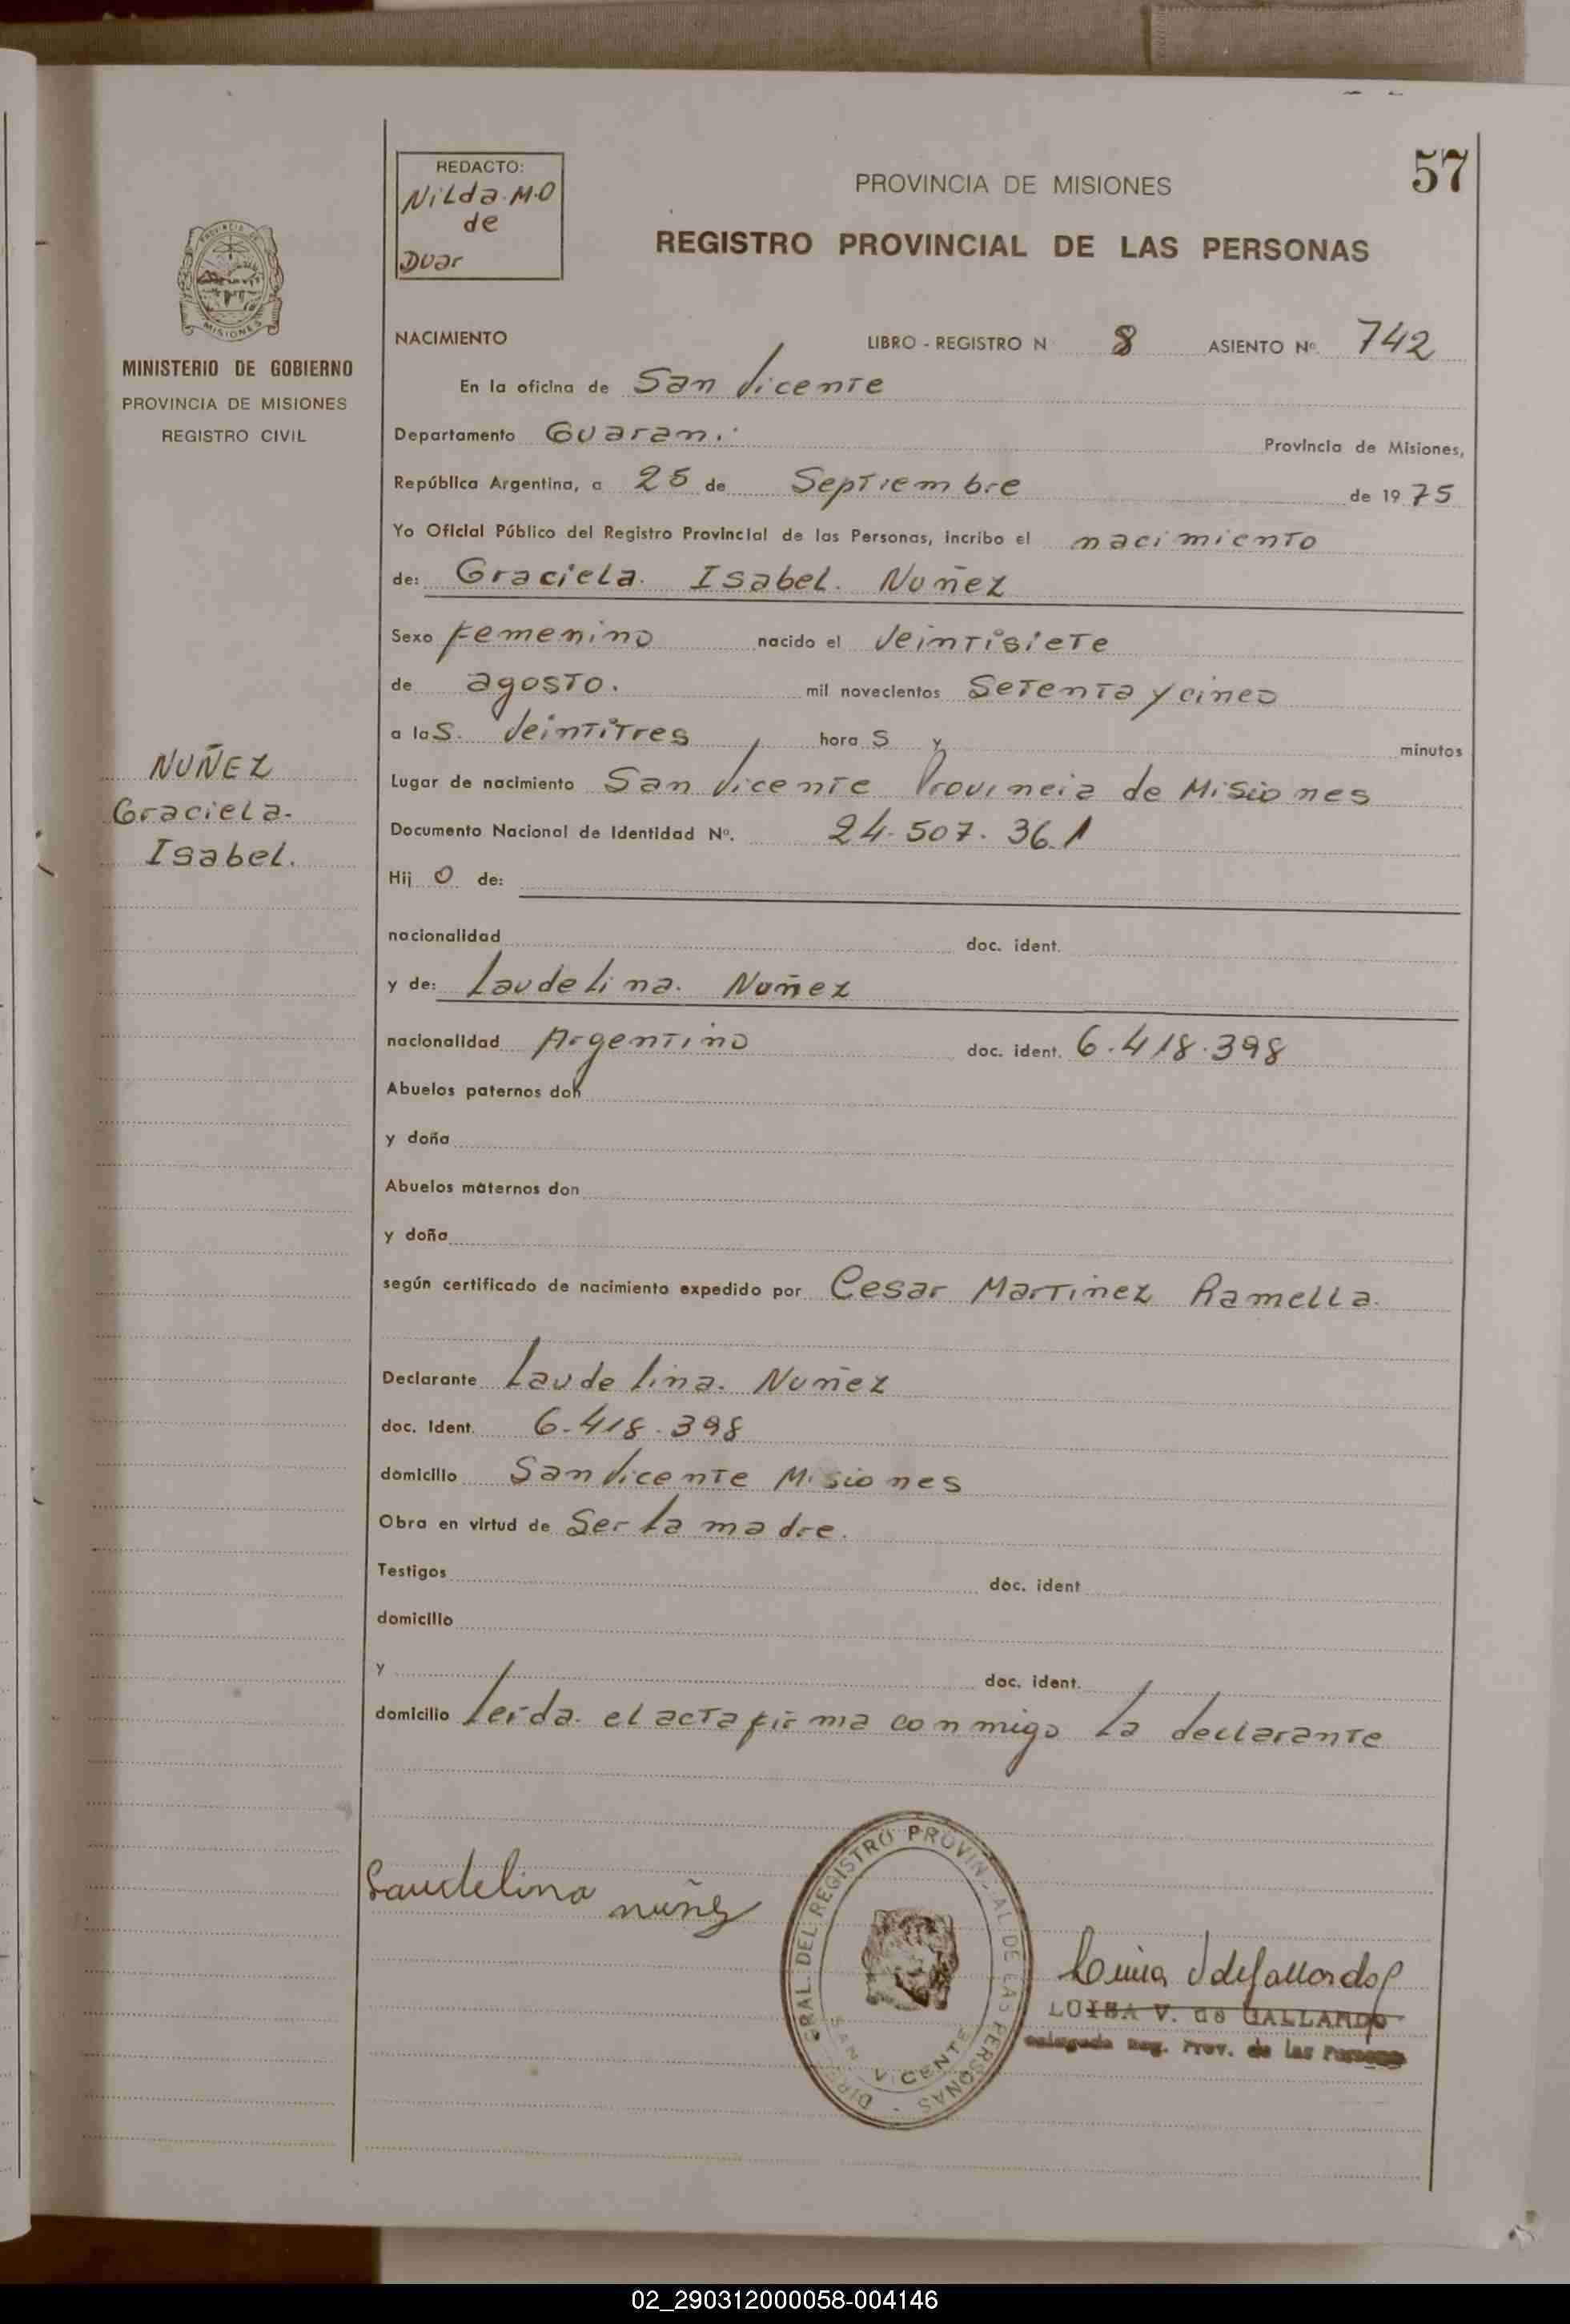 57
REDACTO:
Nilda M.O
de
Duar
PROVINCIA DE MISIONES
REGISTRO PROVINCIAL DE LAS PERSONAS
MISIONES
MINISTERIO DE GOBIERNO
PROVINCIA DE MISIONES
REGISTRO CIVIL
NACIMIENTO LIBRO - REGISTRO N 8 ASIENTO Nº 742
En la oficina de San Vicente
Departamento Guarani Provincia de Misiones,
República Argentina, a 25 de Septiembre de 1975
Yo Oficial Público del Registro Provincial de las Personas, incribo el nacimiento
de: Graciela. Isabel. Nuñez
Sexo femenino nacido el Veintisiete
de agosto. mil novecientos Setenta y cinco
a las. Veintitres horas y minutos
NUÑEZ
Graciela.
Isabel.
Lugar de nacimiento San Vicente Provincia de Misiones
Documento Nacional de Identidad Nº. 24.507.361
Hijo de:
nacionalidad doc. ident.
y de: Laudelina. Nuñez
nacionalidad Argentino doc. ident. 6.418.398
Abuelos paternos don
y doña
Abuelos maternos don
y doña
según certificado de nacimiento expedido por Cesar Martinez Ramella.
Declarante Laudelina. Nuñez
doc. Ident. 6.418.398
domicilio San Vicente Misiones
Obra en virtud de Ser la madre.
Testigos doc. ident
domicilio
y doc. ident.
domicilio Leida. el acta firma conmigo la declarante
Laudelina nuñez
DIREC GRAL. DEL REGISTRO PROVINCIAL DE LAS PERSONAS -
SAN VICENTE
Luisa V de Gallardo
LUISA V. de GALLARDO
Delegada Reg. Prov. de las Personas
02_290312000058-004146